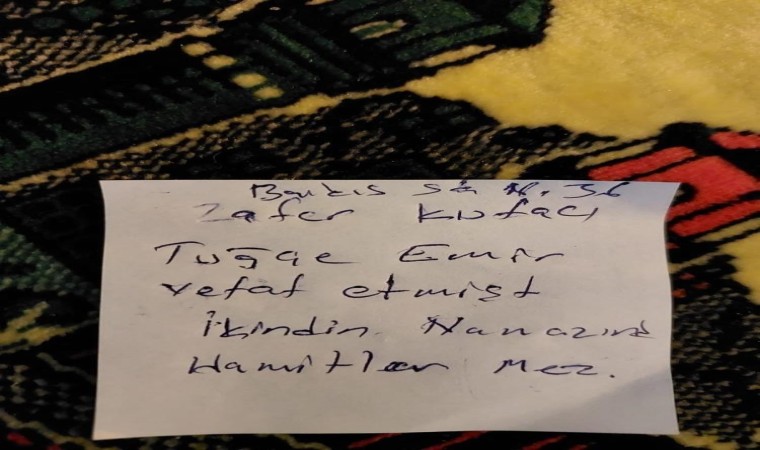 Barkıs Sk N. 36
Zafer Kutacı
Tuğçe Emir
vefat etmişt
İkindin Namazına
Hamitler Mez.